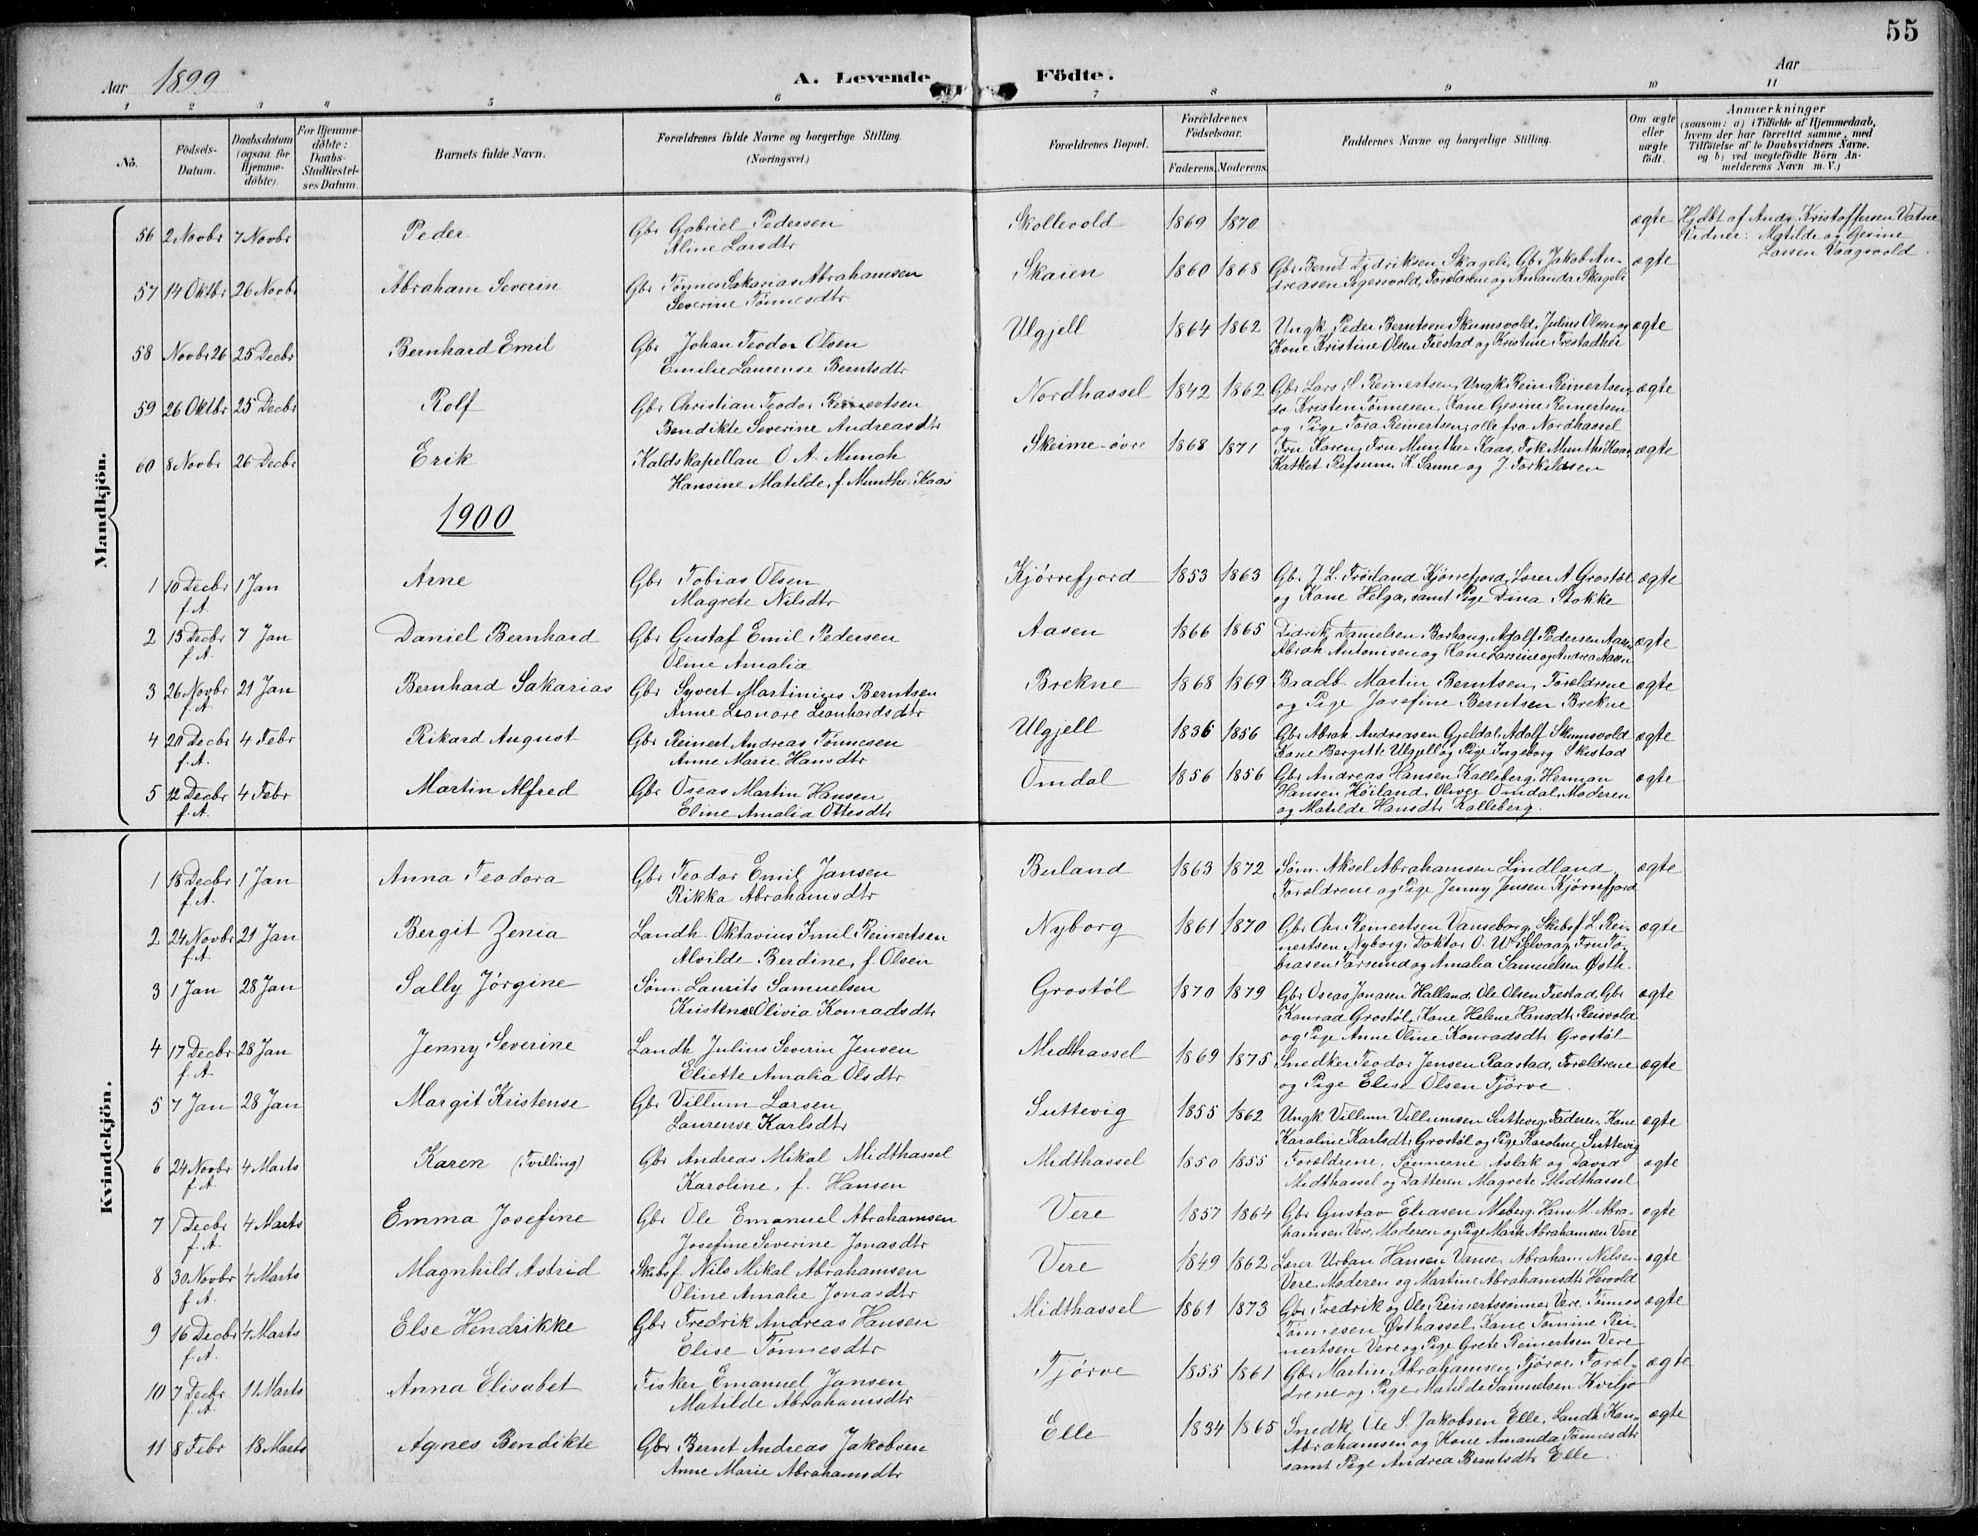 55
Aar 1899
A. Levende
Födte.
Aar
1 2 3 4 5 6 7 8 9 10 11
No.
Födsels-Datum.
Daabsdatum (ogsaa for Hjemme-döbte).
For Hjemme-döbte: Daabs-Stadfæstel-ses Datum.
Barnets fulde Navn.
Forældrenes fulde Navne og borgerlige Stilling. (Næringsvei.)
Forældrenes Bopæl.
Forældrenes Födselsaar.
Faderens. Moderens.
Faddernes Navne og borgerlige Stilling.
Om ægte eller uægte födt.
Anmærkninger
(saasom: a) i Tilfælde af Hjemmedaab,
hvem der har forrettet samme, med
Tilföielse af to Daabsvidners Navne.
og b) ved uægtefödte Börn An-
melderens Navn m. V.)
Mandkjön.
56 2 Novbr 7 Novbr Peder Gbr Gabriel Pedersen Skollevold 1869 1870 ægte Hjdbt af Andr. Kristoffersen Vatne
Aline Larsdtr Vidner: Matilde og Gesine
Larsen Vaagsvold
57 14 Oktbr 26 Novbr Abraham Severin Gbr Tønnes Sakarias Abrahamsen Skaien 1860 1868 Gbr Bernt Didriksen Skageli, Gbr Jakob An- ægte
Severine Tønnesdtr dreasen Segersvold, Forældrene og Amanda Skageli
58 Novbr 26 25 Decbr Bernhard Emil Gbr Johan Teodor Olsen Ulgjell 1864 1862 Ungk. Peder Berntsen Skumsvold, Julius Olsen og ægte
Emilie Laurense Berntsdtr Kone Kristine Olsen Tiestad og Kristine
59 26 Oktbr 25 Decbr Rolf Gbr Christian Teodor Reinertsen Nordhassel 1842 1862 Gbr Lars S. Reinertsen, Ungk Rein Reinertsen, ægte
Bendikte Severine Andreasdtr do Kristen Tønnesen, Kone Gesine Reinertsen
og Pige Tora Reinertsen, alle fra Nordhassel
60 8 Novbr 26 Decbr Erik Kaldskapellan O. A. Munch Skeime-øvre 1868 1871 Fru Karen, Fru Munthe-Kaas, Frk Munthe Kaas, ægte
Hansine Matilde, f. Munthe-Kaas Katket Refsum, K. Sanne og J. Torkildsen
1900
1 10 Decbr 1 Jan Arne Gbr Tobias Olsen Kjørrefjord 1853 1863 Gbr J. L. Trøiland Kjørrefjord, Lærer A Grostøl ægte
f. A. Magrete Nilsdtr og Kone Helga, samt Pige Dina Stokke
2 15 Decbr 7 Jan Daniel Bernhard Gbr Gustaf Emil Pedersen Aasen 1866 1865 Didrik Danielsen Borhaug, Adolf Pedersen Aasen ægte
f. A. Oline Amalia Abrah Antonisen og Kone Larsine og Andrea Aasen
3 26 Novbr 21 Jan Bernhard Sakarias Gbr Syvert Martinius Berntsen Brekne 1868 1869 Baadb. Martin Berntsen, Forældrene ægte
f. A. Anne Leonore Leonhardsdtr og Pige Josefine Berntsen Brekne
4 20 Decbr 4 Febr Rikard August Gbr Reinert Andreas Tønnesen Ulgjell 1836 1856 Gbr Abrah. Andreasen Gjeldal, Adolf Skumsvold ægte
f. A. Anne Marie Hansdtr Kone Bergitte Ulgjell og Pige Ingeborg Skestad
5 12 Decbr 4 Febr Martin Alfred Gbr Oseas Martin Hansen Omdal 1856 1856 Gbr Andreas Hansen Kalleberg, Herman ægte
f. A. Eline Amalia Ottesdtr Hansen Høiland, Oliver Omdal, Moderen
og Matilde Hansdtr Kalleberg.
Kvindekjön.
1 18 Decbr 1 Jan Anna Teodora Gbr Teodor Emil Jansen Buland 1863 1872 Søm. Aksel Abrahamsen Lindland, ægte
f. A. Rikka Abrahamsdtr Forældrene og Pige Jenny Jensen Kjørrefjord
2 24 Novbr 21 Jan Bergit Zenia Landh. Oktavius Emil Reinertsen Nyborg 1861 1870 Gbr Chr. Reinertsen Vanseborg, Skibsf. L. Rei- ægte
f. A. Alvilde Berdine, f. Olsen nertsen Nyborg, Doktor O. W. Selvaag, Fru To-
biasen Farsund og Amalia Samuelsen Østh.
3 1 Jan 28 Jan Sally Jørgine Søm. Laurits Samuelsen Grostøl 1870 1879 Gbr Oseas Jonasen Halland, Ole Olsen Tiestad, Gbr ægte
Kristense Olivia Konradsdtr Konrad Grostøl, Kone Helene Hansdtr Reisvold
og Pige Anne Oline Konradsdtr Grostøl
4 17 Decbr 28 Jan Jenny Severine Landh Julius Severin Jensen Midthassel 1869 1875 Snedker Teodor Jensen Raastad, Forældrene ægte
f. A. Eliette Amalia Olsdtr og Pige Elise Olsen Tjørve.
5 7 Jan 28 Jan Margit Kristense Gbr Villum Larsen Suttevig 1855 1862 Ungk Villum Villumsen Suttevig, Faderen, Kone ægte
Laurense Karlsdtr Karoline Karlsdtr Grostøl og Pige Karoline Suttevig
6 24 Novbr 4 Marts Karen (Tvilling) Gbr Andreas Mikal Midthassel Midthassel 1850 1855 Forældrene, Sønnerne Aslak og David ægte
f. A. Karoline, f. Hansen Midthassel og Datteren Magrete Midthassel
7 1 Decbr 4 Marts Emma Josefine Gbr Ole Emanuel Abrahamsen Vere 1857 1864 Gbr Gustav Eliasen Meberg, Hans M. Abra- ægte
f. A. Josefine Severine Jonasdtr hamsen Vere, Moderen og Pige Marie Abrahamsen Vere
8 30 Novbr 4 Marts Magnhild Astrid Skibsf. Nils Mikal Abrahamsen Vere 1849 1862 Lærer Urban Hansen Vanse, Abraham Nilsen ægte
f. A. Oline Amalie Jonasdtr Vere, Moderen og Martine Abrahamsdtr Hervold
9 16 Decbr 4 Marts Else Hendrikke Gbr Fredrik Andreas Hansen Midthassel 1861 1873 Gbr Fredrik og Ole Reinertssønner Vere, Tønnes ægte
f. A. Elise Tønnesdtr Tønnesen Østhassel, Kone Tomine Rei-
nertsen Vere og Pige Grete Reinertsen Vere
10 7 Decbr 11 Marts Anna Elisabet Fisker Emanuel Jansen Tjørve 1855 1861 Gbr Martin Abrahamsen Tjørve, Foræl- ægte
f. A. Matilde Abrahamsdtr drene og Pige Matilde Samuelsen Kviljo
11 8 Febr 18 Marts Agnes Bendikte Gbr Bernt Andreas Jakobsen Elle 1834 1865 Snedk. Ole S. Jakobsen Elle, Landh. Kan- ægte
Anne Marie Abrahamsdtr Abrahamsen og Kone Amanda Tønnesdtr
samt Pige Andrea Berntsdtr Elle.